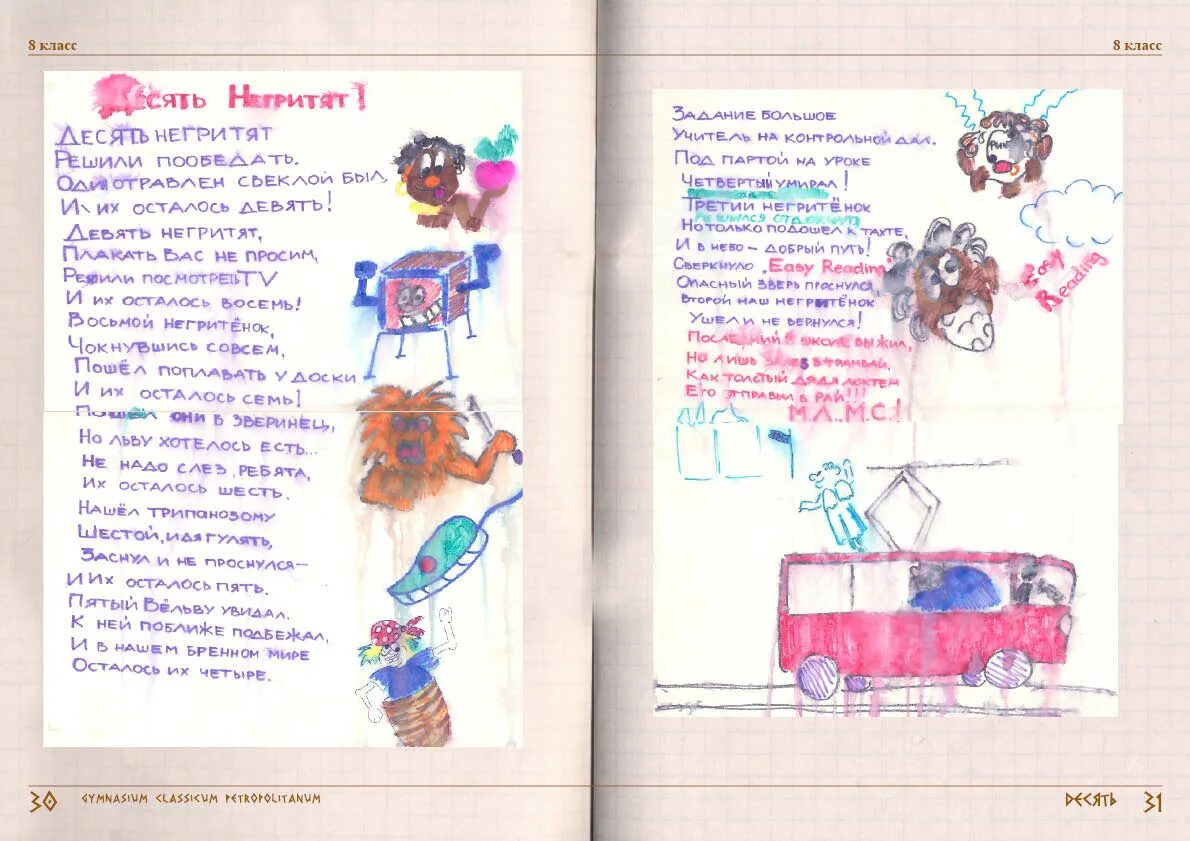 8 класс
Десять Негритят!
Десять негритят
Решили пообедать.
Один отравлен свеклой был,
И их осталось девять!
Девять негритят,
Плакать Вас не просим,
Решили посмотреть TV
И их осталось восемь!
Восьмой негритёнок,
Чокнувшись совсем,
Пошёл поплавать у доски
И их осталось семь!
они в зверинец,
Но льву хотелось есть...
Не надо слез, ребята,
Их осталось шесть.
Нашёл трипанозому
Шестой, идя гулять,
Заснул и не проснулся—
И их осталось пять.
Пятый Вёльву увидал,
К ней поближе подбежал,
И в нашем бренном мире
Осталось их четыре.
30 GYMNASIUM CLASSICUM PETROPOLITANUM
8 класс
Задание большое
Учитель на контрольной дал.
Под партой на уроке
Четвертый умирал!
Третий негритёнок
Решился отдохнуть
Но только подошел к тахте,
И в небо – добрый путь!
Сверкнуло „Easy Reading"
Опасный зверь проснулся,
Второй наш негритёнок
Ушел и не вернулся!
Последний в школе выжил,
Но лишь залез в трамвай,
Как толстый дядя локтем
Его отправил в рай!!!
М.Л., М.С.!
Easy
Reading
ДЕСЯТЬ 31